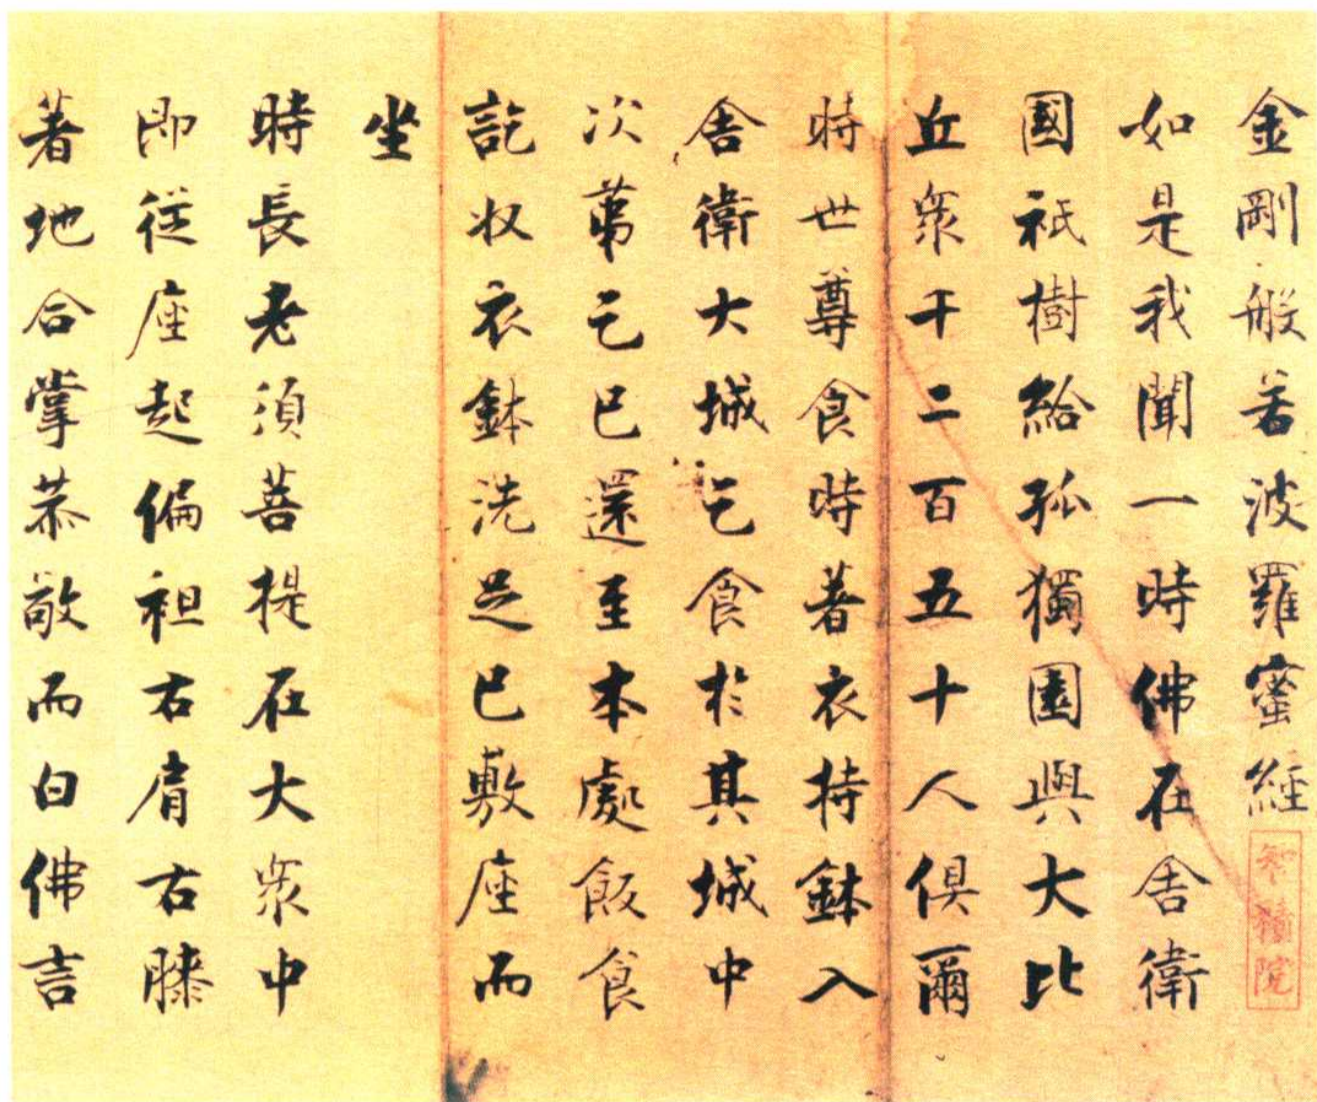 金剛般若波羅蜜經
智積院
如是我聞一時佛在舍衛
國祇樹給孤獨園與大比
丘衆千二百五十人俱爾
時世尊食時著衣持鉢入
舍衛大城乞食於其城中
次第乞已還至本處飯食
訖收衣鉢洗足已敷座而
坐
時長老須菩提在大衆中
即從座起偏袒右肩右膝
著地合掌恭敬而白佛言